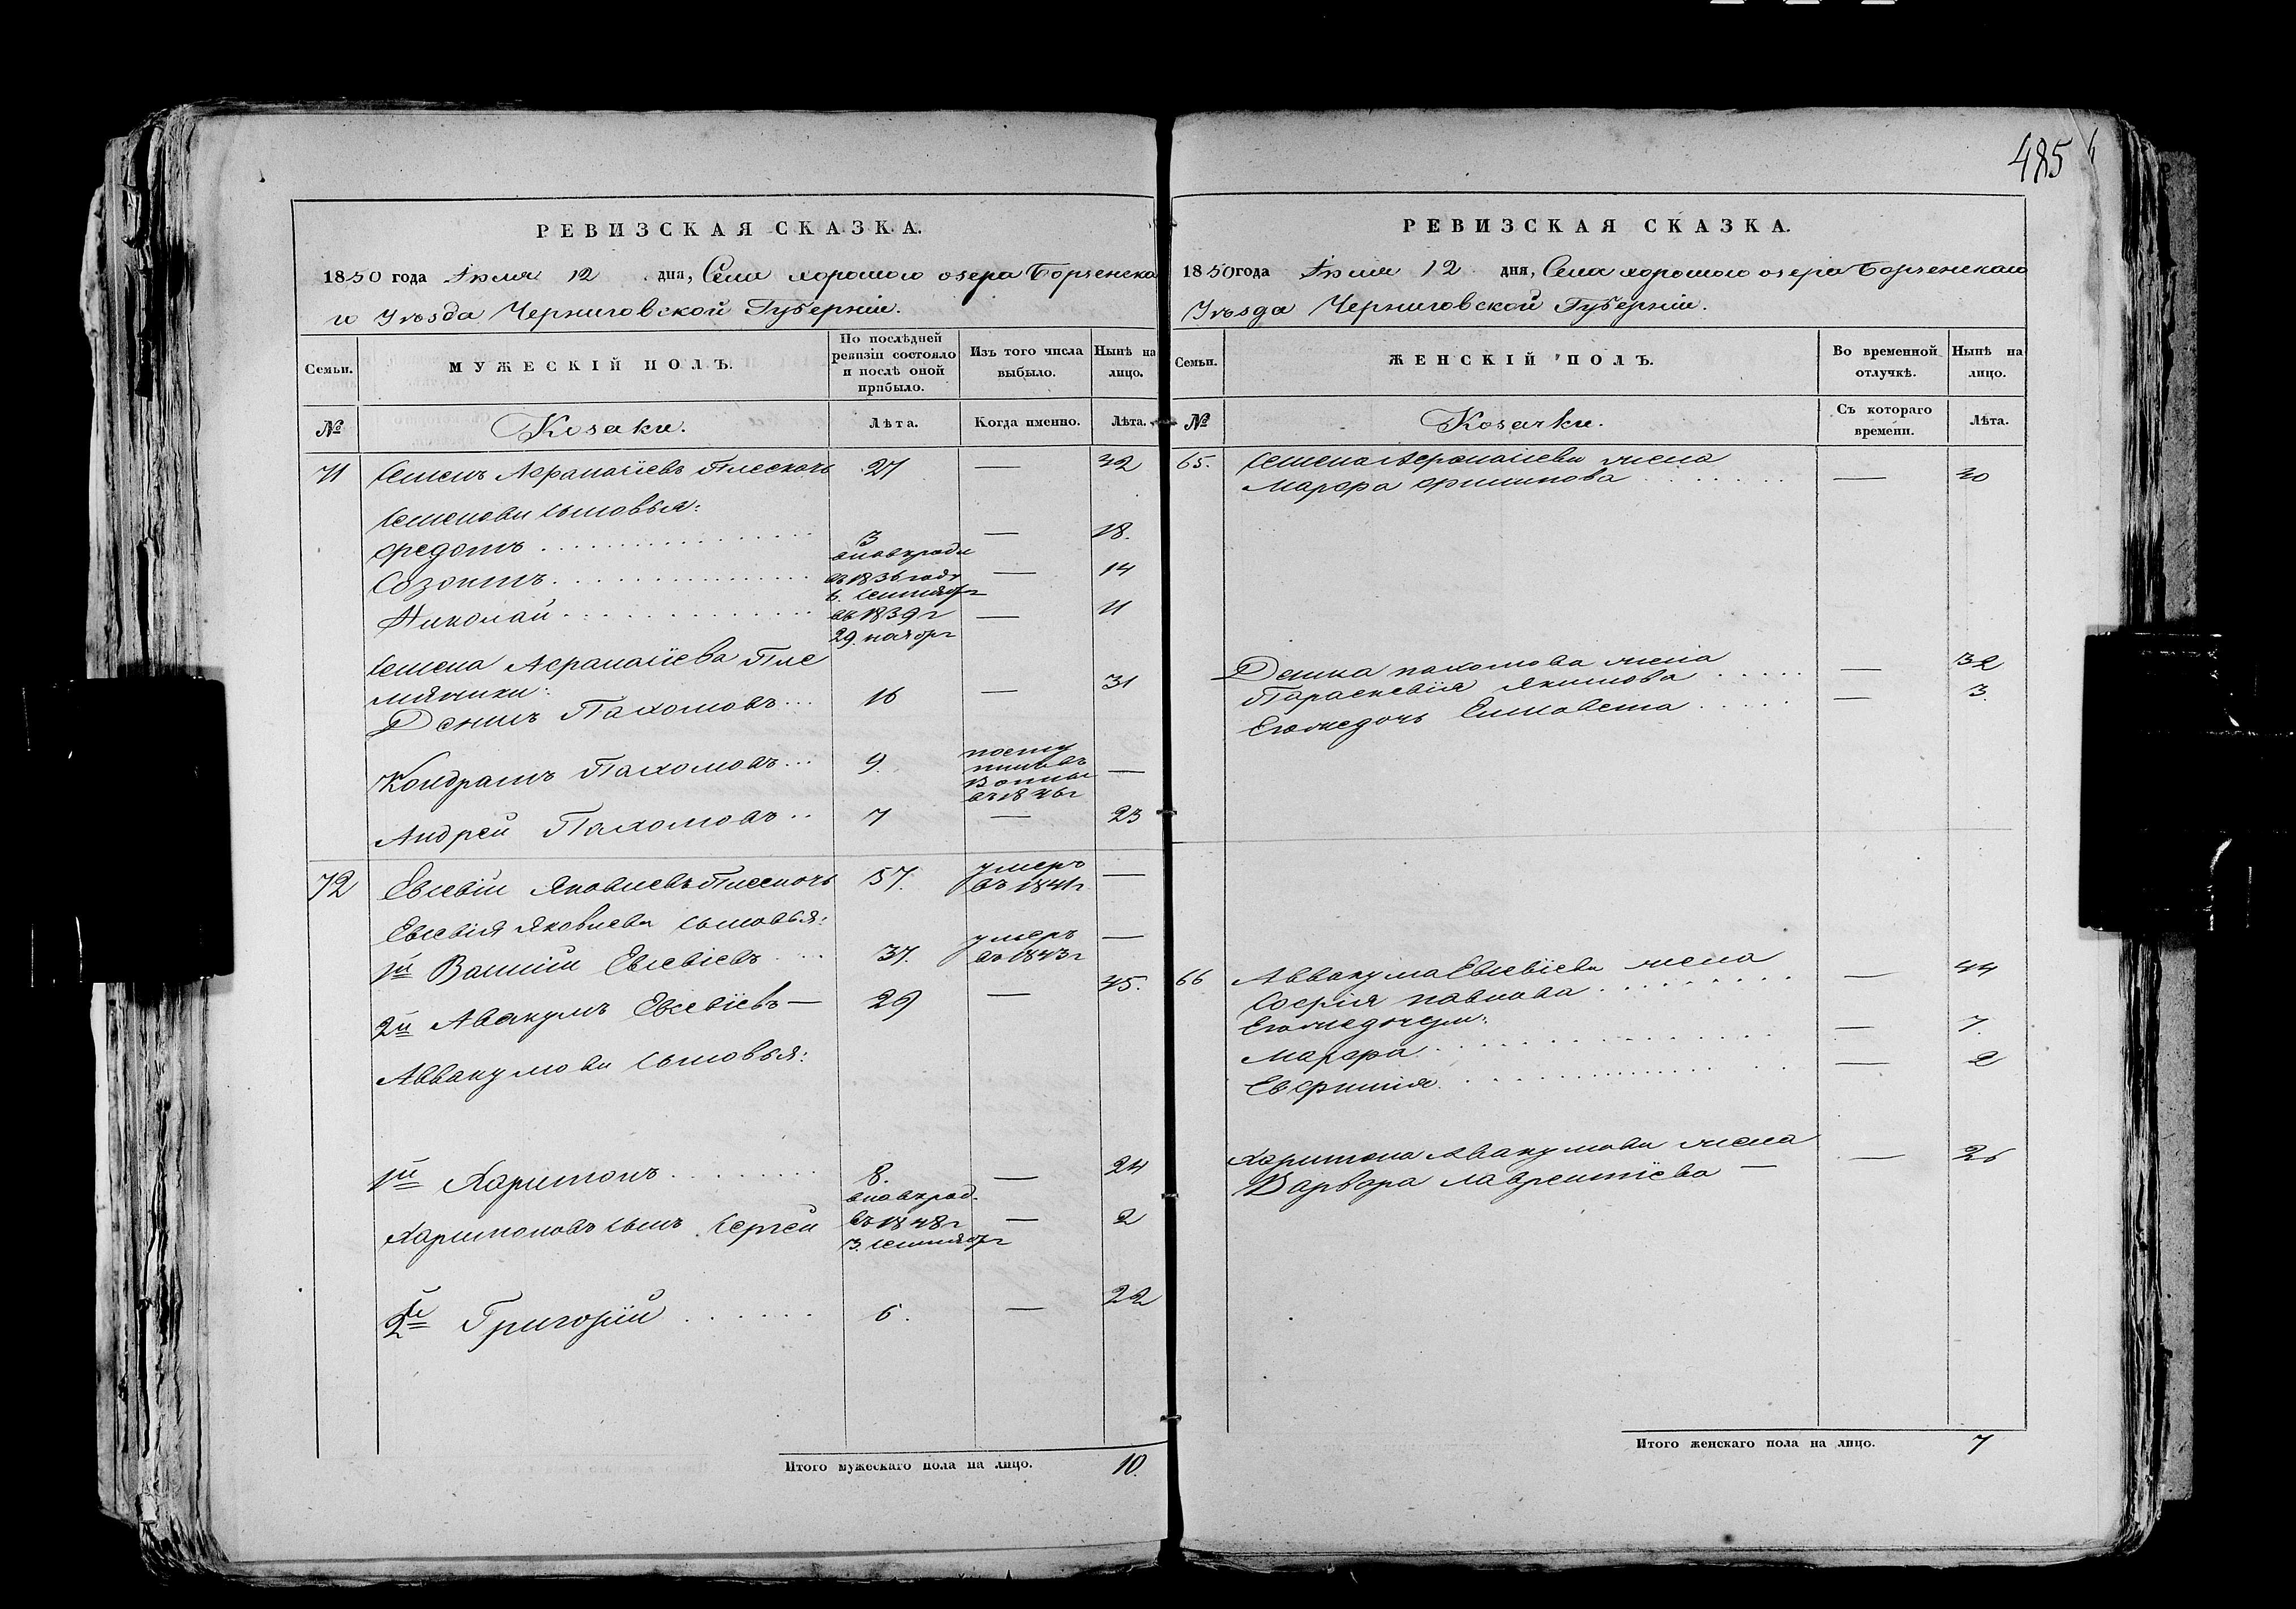 485
РЕВИЗСКАЯ СКАЗКА.
1850 года Июля 12 дня, Села хорошого озера Борзенска
го Уѣзда Черниговской Губерніи.
Семьи.
МУЖЕСКІЙ ПОЛЪ.
По послѣдней ревизіи состояло и послѣ оной прибыло.
Изъ того числа выбыло.
Нынѣ на лицо.
№
Козаки.
Лѣта.
Когда именно.
Лѣта.
71 Семенъ Афанасіевъ 27 — 42
Семенови сыновья:
Федотъ 3 — 18.
Созонтъ внов. рожд. въ 1836 году 6. Сентября — 14
Николай въ 1839 г 29. ноября — 11
Семена Афанасіева Пле
мянники:
Денисъ Пахомовъ 16 — 31
Кондратъ Пахомовъ 9. въ 1846 г —
Андрей Пахомовъ 7 — 23
72 Евсевій Яковлевъ 57. умеръ въ 1841 г —
Евсевія Яковлева сыновья:
1й Василій Евсевіевъ 37. умеръ въ 1843 г —
2й Авакумъ Евсевіевъ — 29 — 45.
Аввакумови сыновья:
1й Харитонъ 8. — 24
Харитоновъ сынъ Сергей внов рожд. въ 1848 г 3. Сентября — 2
2й Григорій 6. — 22
Итого мужескаго пола на лицо. 10.
РЕВИЗСКАЯ СКАЗКА.
1850 года Июля 12 дня, Села хорошого озера Борзенскаго
Уѣзда Черниговской Губерніи.
Семьи.
ЖЕНСКІЙ ПОЛЪ.
Во временной отлучкѣ.
Нынѣ на лицо.
№
Козачки.
Съ котораго времени.
Лѣта.
65. Семена Афанасіеви жена
Марфа Филипова — 40
Дениса пахомова жена
Параскевія Якимова — 32
Его же дочь Елисавета — 3
66 Аввакума Евсевіеви жена
Софія павлова — 44
Его же дочери:
Марфа — 7.
Евфимія — 2
Харитона Авакумови жена
Варвара Лаврентіева — — 26
Итого женскаго пола на лицо. 7